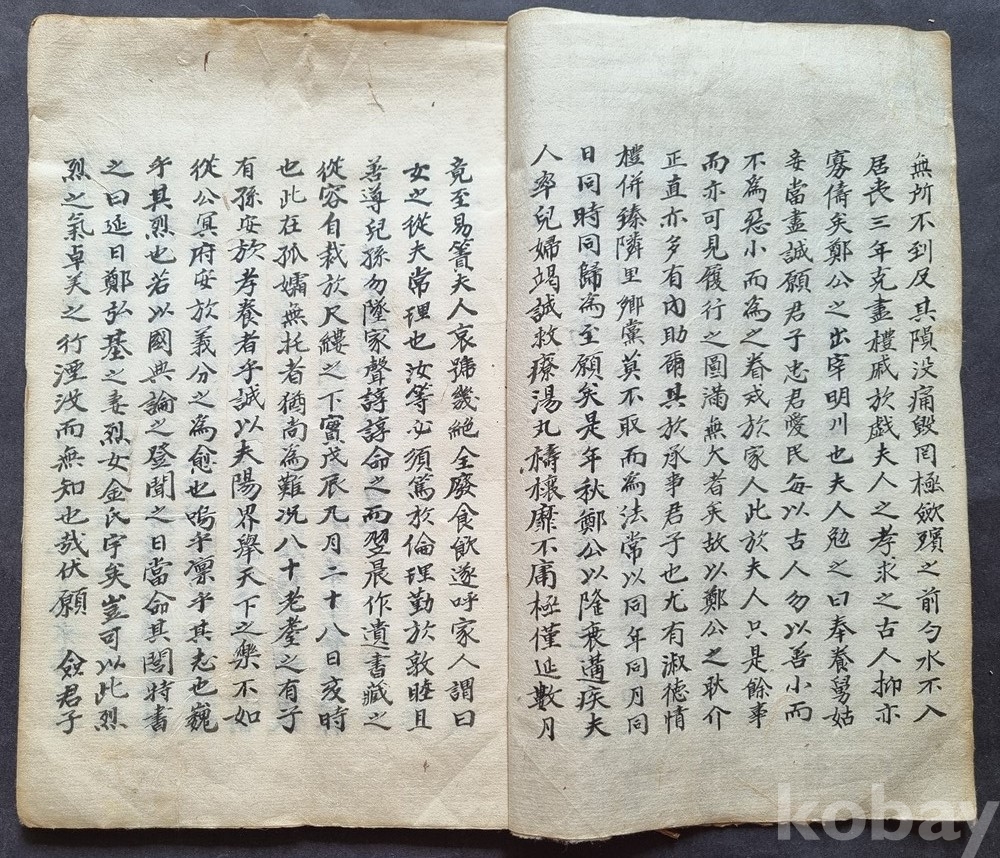 無所不到及其隕没痛毁罔極歛殯之前勺水不入
居丧三年克盡禮戚於戲夫人之孝求之古人抑亦
寡儔矣鄭公之出宰明川也夫人勉之曰奉養舅姑
妾當盡誠願君子忠君愛民每以古人勿以善小而
不為惡小而為之眷戒於家人此於夫人只是餘事
而亦可見履行之圖滿無欠者矣故以鄭公之耿介
正直亦多有內助爾其於承事君子也尤有淑德情
禮併臻隣里鄉黨莫不取而為法常以同年同月同
日同時同歸為至願矣是年秋鄭公以隆衰遘疾夫
人率兒婦竭誠救療湯丸禱禳靡不庸極僅延數月
竟至易簀夫人哀號幾絕全廢食飲遂呼家人謂曰
女之從夫常理也汝等必須篤於倫理勤於敦睦且
善導兒孫勿墜家聲諄諄命之而翌晨作遺書藏之
從容自裁於尺縷之下實戊辰九月二十八日亥時
也此在孤孀無托者猶尚為難况八十老耋之有子
有孫安於孝養者乎誠以夫陽界舉天下之樂不如
從公冥府安於義分之為愈也嗚乎凛乎其志也巍
乎其烈也若以國典論之登聞之日當命其閭特書
之曰延日鄭弘基之妻烈女金氏字矣豈可以此烈
烈之氣卓美之行湮汶而無知也哉伏願 僉君子
kobay